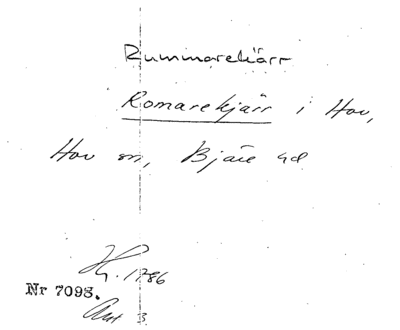 Rummarekärr
Romarekjärr i Hov,
Hov sn, Bjäre hd
Hg. 1786
Nr 7098.
Ant 3